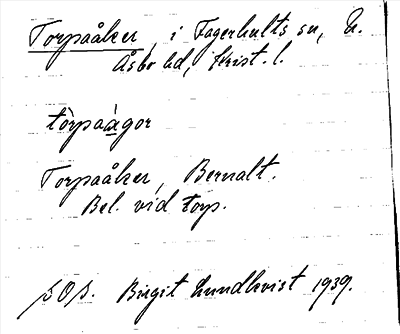 Torpaåker, i Fagerhults sn,
Åsbo hd, Krist. l.
tòrpaágor
Torpaåker, Bernalt.
Bel. vid torp.
Birgit Lundkvist 1939.